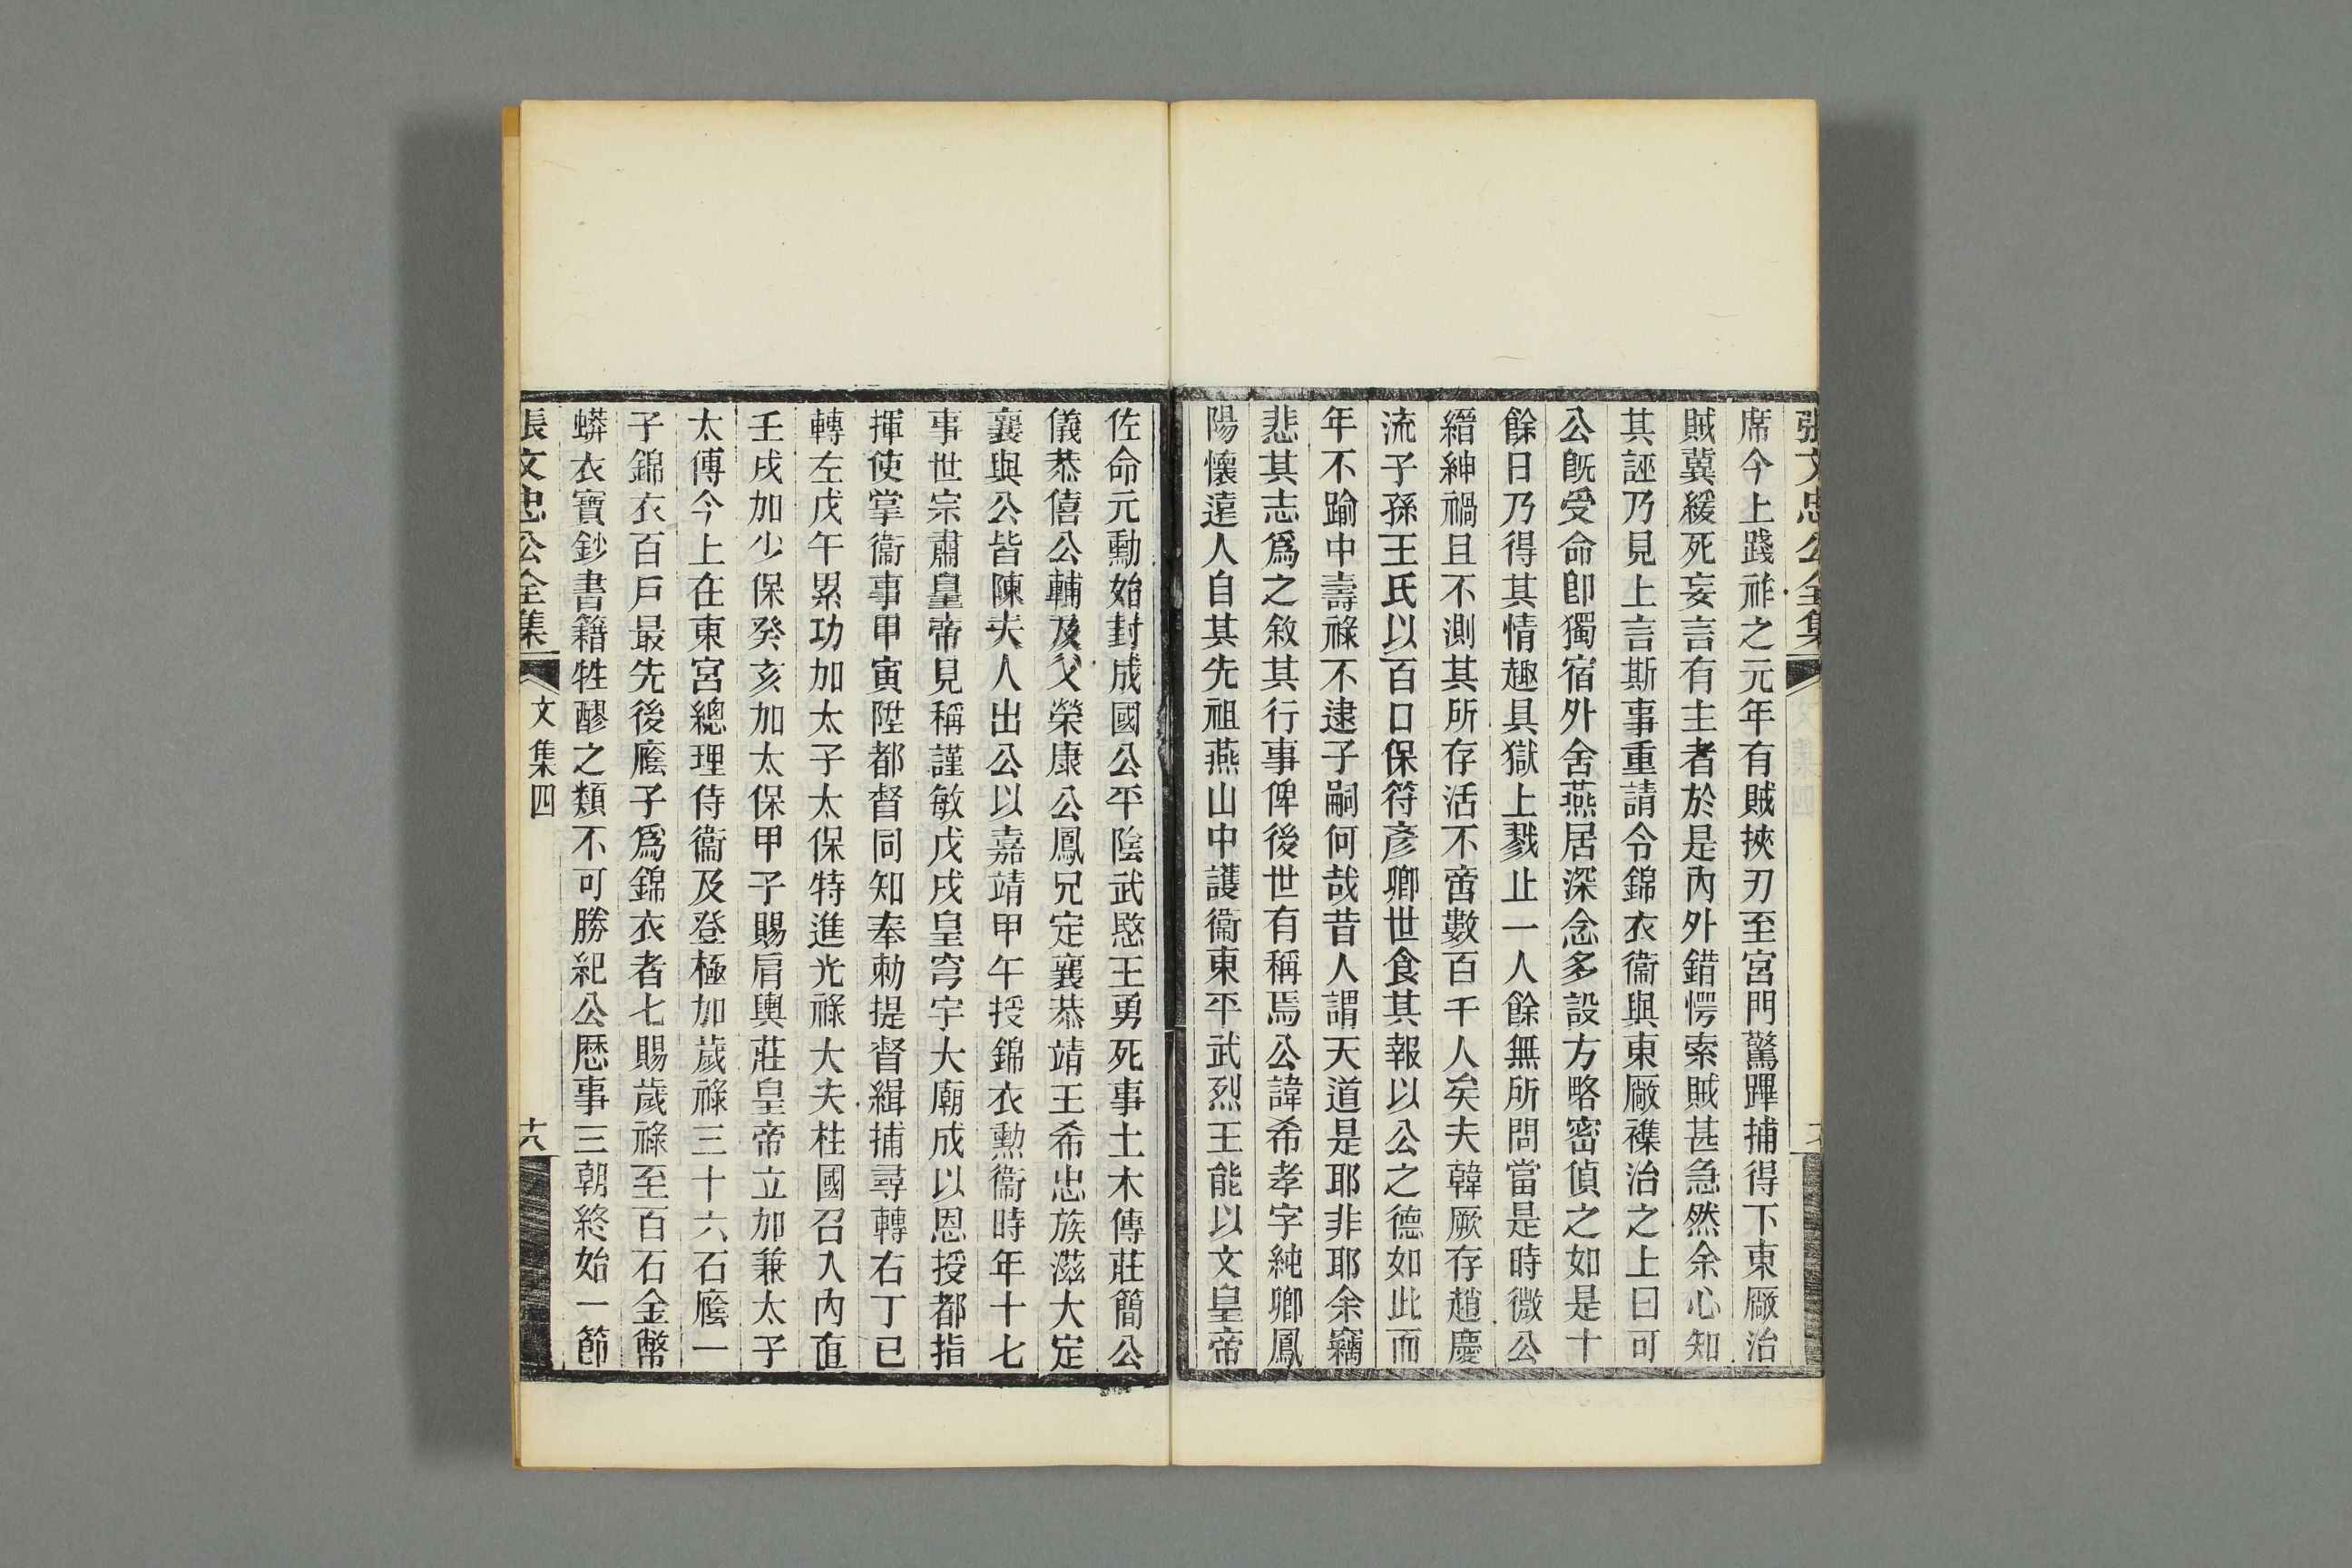 張文忠公全集
席今上踐祚之元年有賊挾刃至宮門驚蹕捕得下東廠治
賊冀緩死妄言有主者於是內外錯愕索賊甚急然余心知
其誣乃見上言斯事重請令錦衣衞與東廠襍治之上曰可
公旣受命卽獨宿外舍燕居深念多設方略密偵之如是十
餘日乃得其情趣具獄上戮止一人餘無所問當是時微公
縉紳禍且不測其所存活不啻數百千人矣夫韓厥存趙慶
流子孫王氏以百口保符彥卿世食其報以公之德如此而
年不踰中壽祿不逮子嗣何哉昔人謂天道是耶非耶余竊
悲其志爲之敘其行事俾後世有稱焉公諱希孝字純卿鳳
陽懷遠人自其先祖燕山中護衞東平武烈王能以文皇帝
佐命元勳始封成國公平陰武愍王勇死事土木傳莊簡公
儀恭僖公輔及父榮康公鳳兄定襄恭靖王希忠族滋大定
襄與公皆陳夫人出公以嘉靖甲午授錦衣勳衞時年十七
事世宗肅皇帝見稱謹敏戊戌皇穹宇大廟成以恩授都指
揮使掌衞事甲寅陞都督同知奉勅提督緝捕尋轉右丁巳
轉左戊午累功加太子太保特進光祿大夫柱國召入內直
壬戌加少保癸亥加太保甲子賜肩輿莊皇帝立加兼太子
太傅今上在東宮總理侍衞及登極加歲祿三十六石廕一
子錦衣百戶最先後廕子爲錦衣者七賜歲祿至百石金幣
蟒衣寶鈔書籍牲醪之類不可勝紀公歷事三朝終始一節
張文忠公全集
文集四
十八